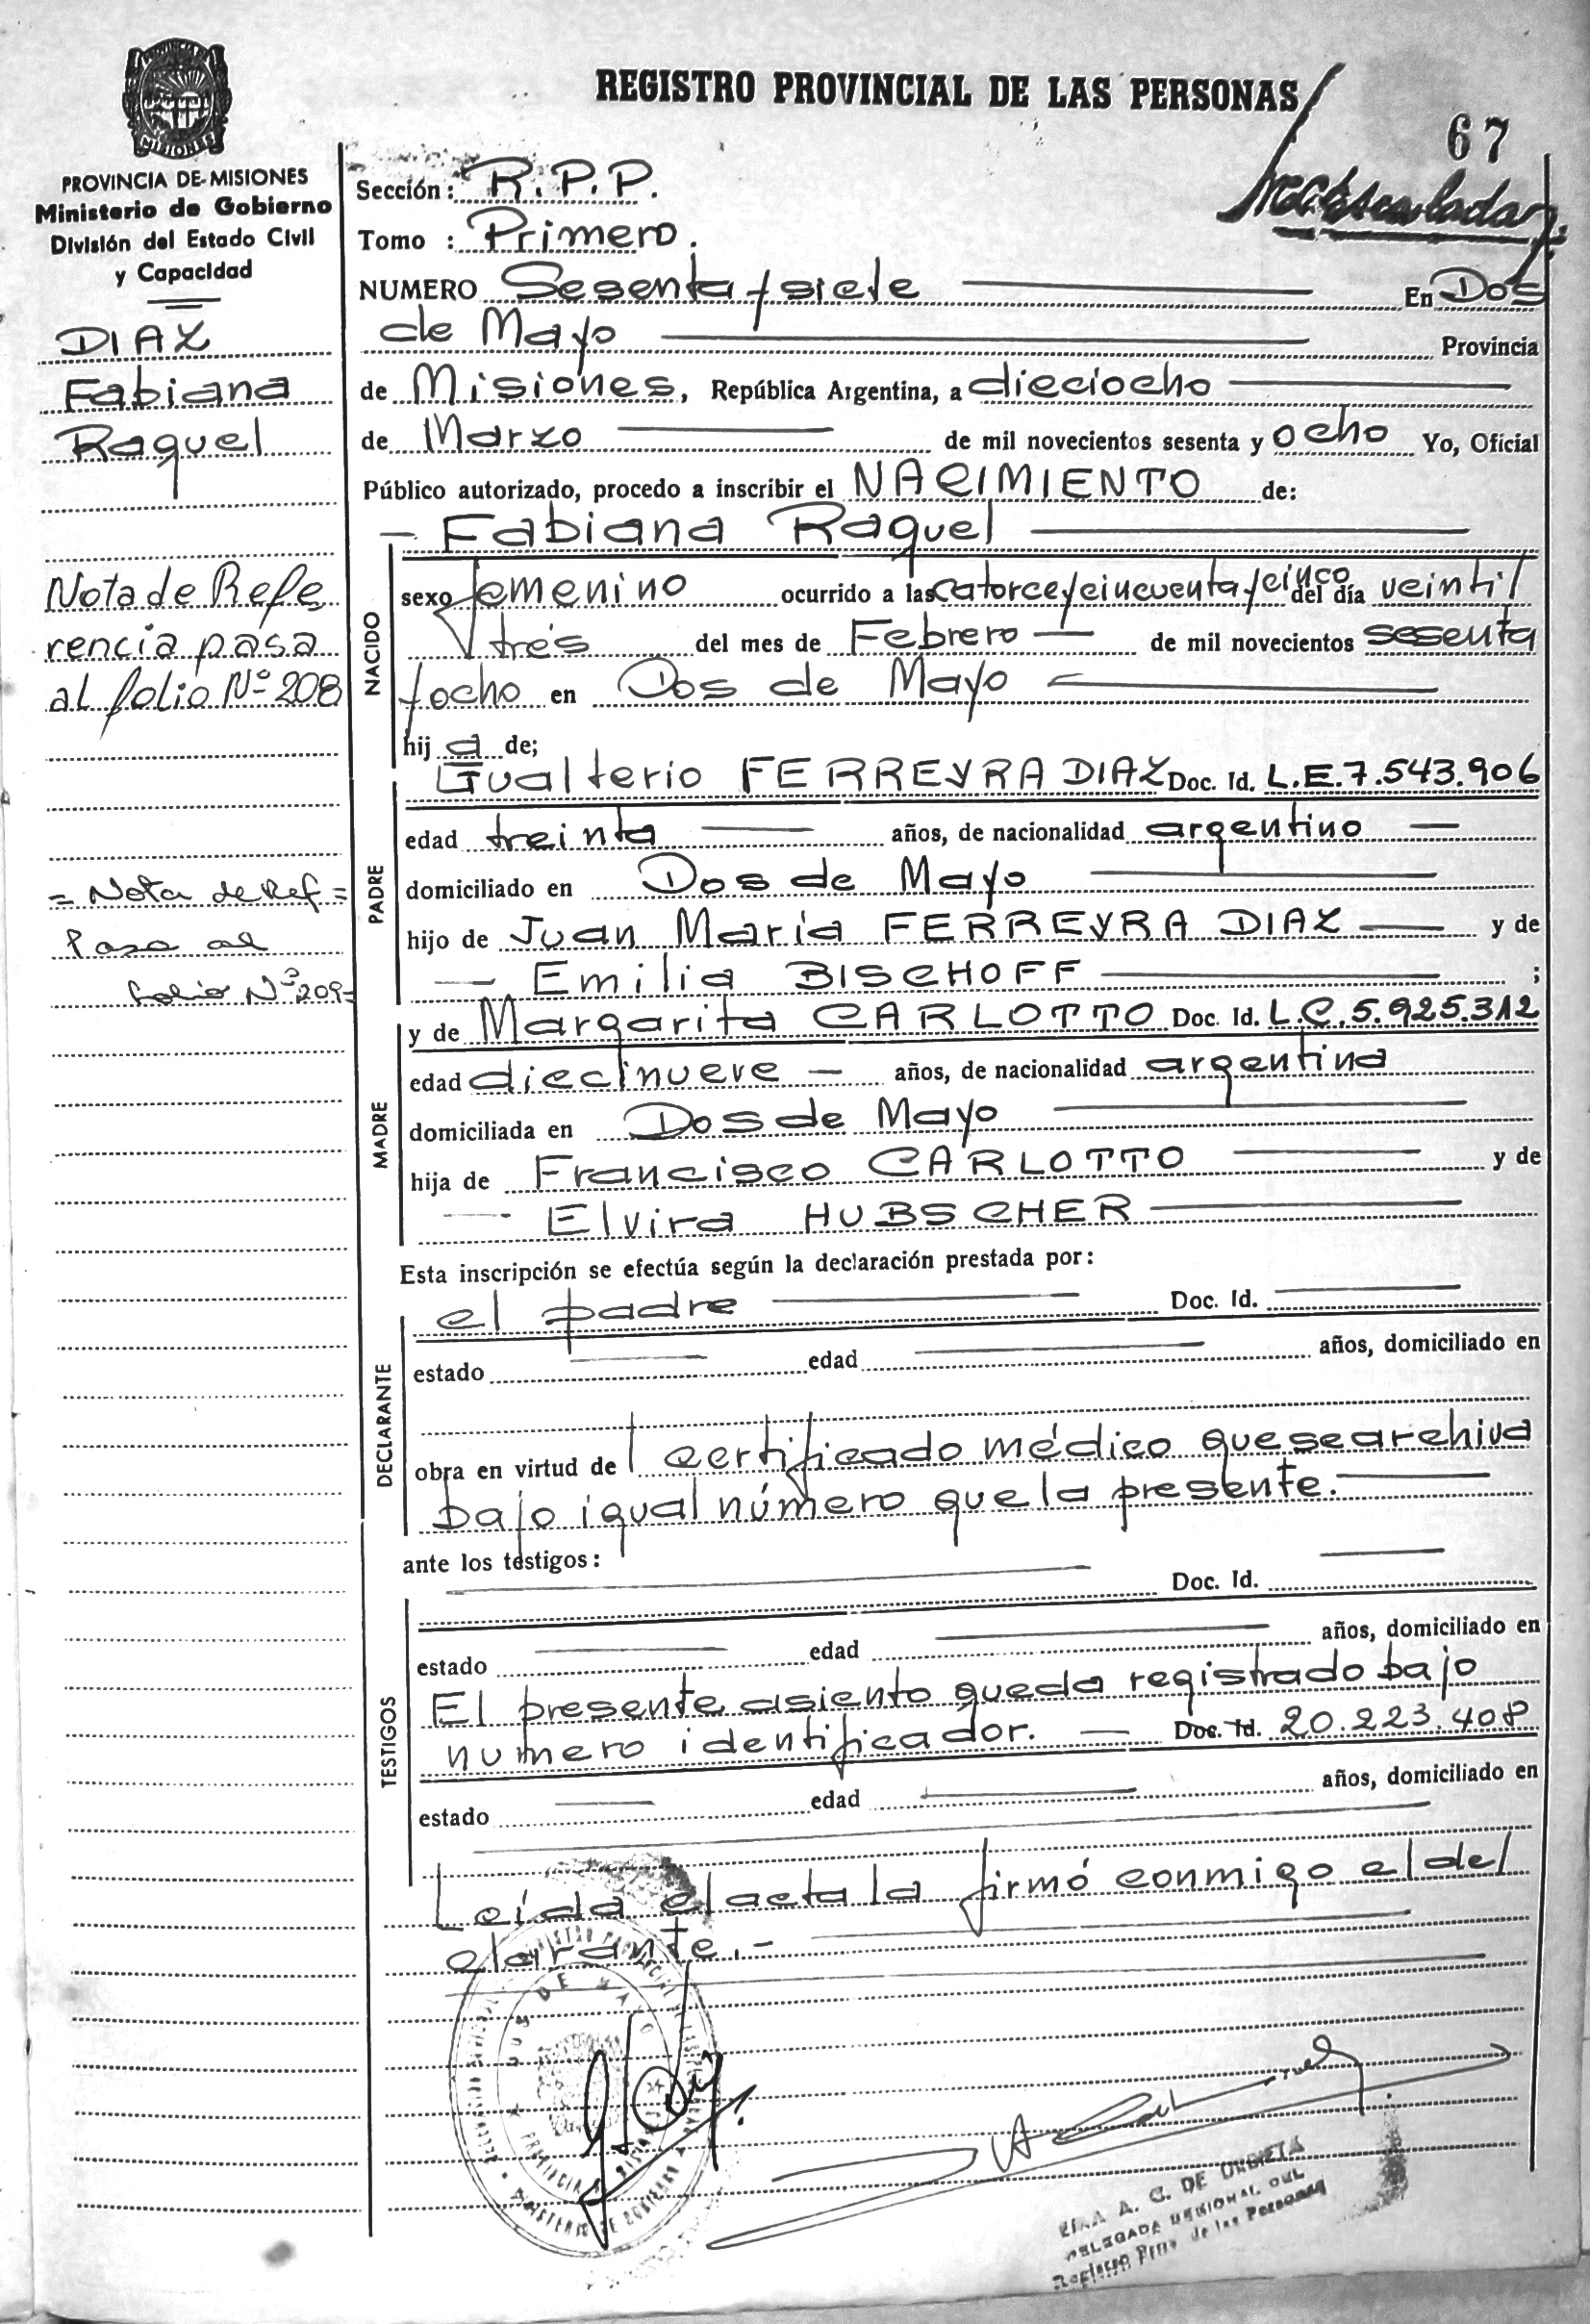 REGISTRO PROVINCIAL DE LAS PERSONAS
67
MISIONES
PROVINCIA DE MISIONES
Ministerio de Gobierno
División del Estado Civil
y Capacidad
DIAZ
Fabiana
Raquel
Nota de Refe
rencia pasa
al folio Nº 208
= Nota de Ref =
Pasa al
folio Nº 209-
Sección: R.P.P.
Tomo : Primero.
NUMERO Sesenta y siete En Dos
de Mayo Provincia
de Misiones, República Argentina, a dieciocho
de Marzo de mil novecientos sesenta y ocho Yo, Oficial
Público autorizado, procedo a inscribir el NACIMIENTO de:
Fabiana Raquel
NACIDO
sexo femenino ocurrido a las catorce y cincuenta y cinco del día veinti
y tres del mes de Febrero de mil novecientos sesenta
y ocho en Dos de Mayo
hija de;
PADRE
Gualterio FERREYRA DIAZ Doc. Id. L.E. 7.543.906
edad treinta años, de nacionalidad argentino
domiciliado en Dos de Mayo
hijo de Juan María FERREYRA DIAZ y de
Emilia BISCHOFF ;
MADRE
y de Margarita CARLOTTO Doc. Id. L.C. 5.925.312
edad diecinueve años, de nacionalidad argentina
domiciliada en Dos de Mayo
hija de Francisco CARLOTTO y de
Elvira HUBSCHER
Esta inscripción se efectúa según la declaración prestada por:
DECLARANTE
el padre Doc. Id.
estado edad años, domiciliado en
obra en virtud del certificado médico que se archiva
bajo igual número que la presente.
ante los testigos:
TESTIGOS
Doc. Id.
estado edad años, domiciliado en
El presente asiento queda registrado bajo
numero identificador. Doc. Id. 20.223.408
estado edad años, domiciliado en
Leída el acta la firmó conmigo el del
clarante.-
DOS DE MAYO
PROVINCIA DE MISIONES
MINISTERIO DE GOBIERNO
A. C. DE URBIETA
DELEGADA REGIONAL DEL
Registro Prov. de las Personas